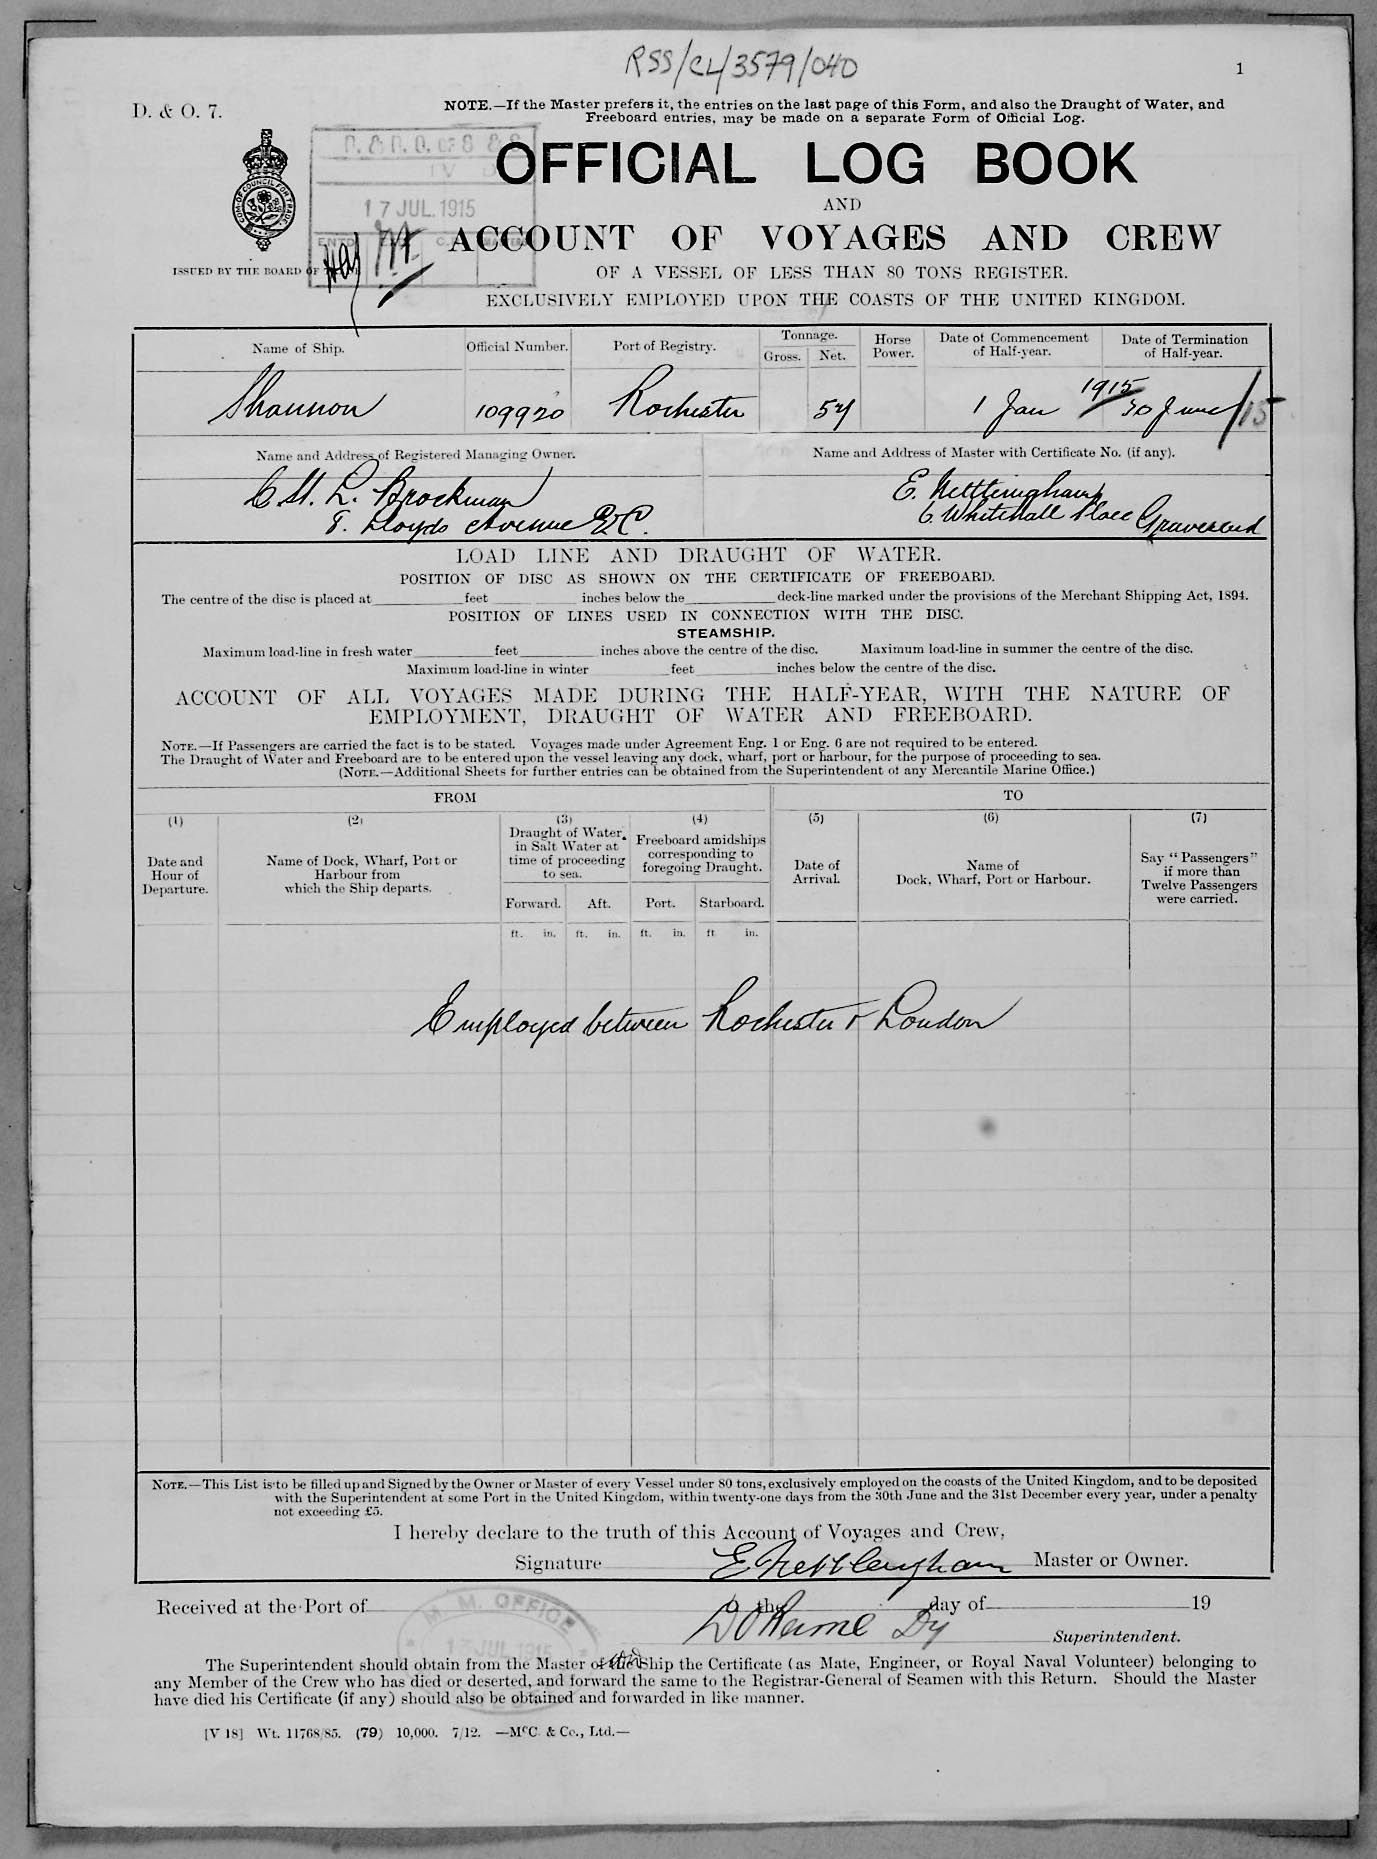 RSS/CL/3579/040
1
D. & O. 7.
NOTE.—If the Master prefers it, the entries on the last page of this Form, and also the Draught of Water, and
Freeboard entries, may be made on a separate Form of Official Log.
OFFICIAL LOG BOOK
17 JUL. 1915
AND
ACCOUNT OF VOYAGES AND CREW
ISSUED BY THE BOARD OF
OF A VESSEL OF LESS THAN 80 TONS REGISTER.
EXCLUSIVELY EMPLOYED UPON THE COASTS OF THE UNITED KINGDOM.
Name of Ship. Official Number. Port of Registry. Tonnage. Gross. Net. Horse Power. Date of Commencement of Half-year. Date of Termination of Half-year.
Shannon 109920 Rochester 57 1 Jan 1915 30 June/15
Name and Address of Registered Managing Owner. Name and Address of Master with Certificate No. (if any).
C. St. L. Brockman E. Nettlingham
7. Lloyds Avenue E.C. 6 Whitehall Place Gravesend
LOAD LINE AND DRAUGHT OF WATER.
POSITION OF DISC AS SHOWN ON THE CERTIFICATE OF FREEBOARD.
The centre of the disc is placed at feet inches below the deck-line marked under the provisions of the Merchant Shipping Act, 1894.
POSITION OF LINES USED IN CONNECTION WITH THE DISC.
STEAMSHIP.
Maximum load-line in fresh water feet inches above the centre of the disc. Maximum load-line in summer the centre of the disc.
Maximum load-line in winter feet inches below the centre of the disc.
ACCOUNT OF ALL VOYAGES MADE DURING THE HALF-YEAR, WITH THE NATURE OF
EMPLOYMENT, DRAUGHT OF WATER AND FREEBOARD.
NOTE.—If Passengers are carried the fact is to be stated. Voyages made under Agreement Eng. 1 or Eng. 6 are not required to be entered.
The Draught of Water and Freeboard are to be entered upon the vessel leaving any dock, wharf, port or harbour, for the purpose of proceeding to sea.
(NOTE.—Additional Sheets for further entries can be obtained from the Superintendent of any Mercantile Marine Office.)
FROM TO
(1) (2) (3) (4) (5) (6) (7)
Date and Hour of Departure.
Name of Dock, Wharf, Port or Harbour from which the Ship departs.
Draught of Water, in Salt Water at time of proceeding to sea.
Freeboard amidships corresponding to foregoing Draught.
Date of Arrival.
Name of Dock, Wharf, Port or Harbour.
Say "Passengers" if more than Twelve Passengers were carried.
Forward. Aft. Port. Starboard.
ft. in. ft. in. ft. in. ft in.
Employed between Rochester & London
NOTE.—This List is to be filled up and Signed by the Owner or Master of every Vessel under 80 tons, exclusively employed on the coasts of the United Kingdom, and to be deposited
with the Superintendent at some Port in the United Kingdom, within twenty-one days from the 30th June and the 31st December every year, under a penalty
not exceeding £5.
I hereby declare to the truth of this Account of Voyages and Crew,
Signature E Nettlingham Master or Owner.
Received at the Port of the day of 19
M. M. OFFICE
JUL 1915
Dy Superintendent.
The Superintendent should obtain from the Master of the Ship the Certificate (as Mate, Engineer, or Royal Naval Volunteer) belonging to
any Member of the Crew who has died or deserted, and forward the same to the Registrar-General of Seamen with this Return. Should the Master
have died his Certificate (if any) should also be obtained and forwarded in like manner.
[V 18] Wt. 11768/85. (79) 10,000. 7/12. —McC. & Co., Ltd.—